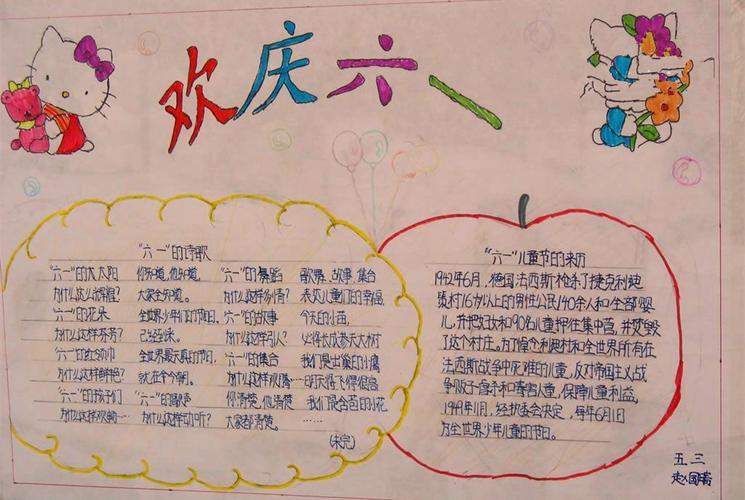 欢庆六一
"六一"的诗歌
"六一"的大太阳 你知道,他知道, "六一"的舞蹈 歌舞、故事、集合
为什么这么辉煌? 大家全知道。 为什么这样多情? 表达儿童们的幸福
"六一"的花朵 全世界少年们的节日, "六一"的故事 今天的小苗,
为什么这样芬芳? 已经到来。 为什么这样引人? 必将长成参天大树
"六一"的红领巾 全世界最天真的节日, "六一"的集合 我们是出巢的小鹰
为什么这样鲜艳? 就在今朝。 为什么这样欢腾… 明天将飞得很高
"六一"的孩子们 "六一"的歌声 你清楚,他清楚, 我们是含苞的小花
为什么这样欢畅… 为什么这样动听? 大家都清楚。 ……
(未完)
"六一"儿童节的来历
1942年6月,德国法西斯枪杀了捷克利迪
策村16岁以上的男性公民140余人和全部婴
儿,并把妇女和90名儿童押往集中营,并焚毁
了这个村庄。为了悼念利迪村和全世界所有在
法西斯战争中死难的儿童,反对帝国主义战
争贩子虐杀和毒害儿童,保障儿童利益。
1949年11月,经执委会决定,每年6月1日
为全世界少年儿童的节日。
五三
赵国